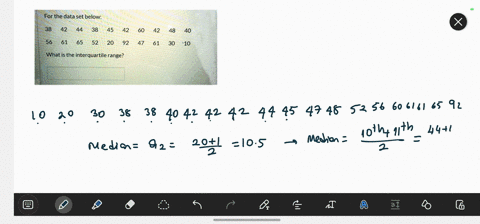 For the data set below:
38 42 44 38 45 42 60 42 48 40
56 61 65 52 20 92 47 61 30 10
What is the interquartile range?
10 20 30 38 38 40 42 42 42 44 45 47 48 52 56 60 61 61 65 92
Median = Q2 = 20+1/2 = 10.5 → Median = 10th + 11th/2 = 44+